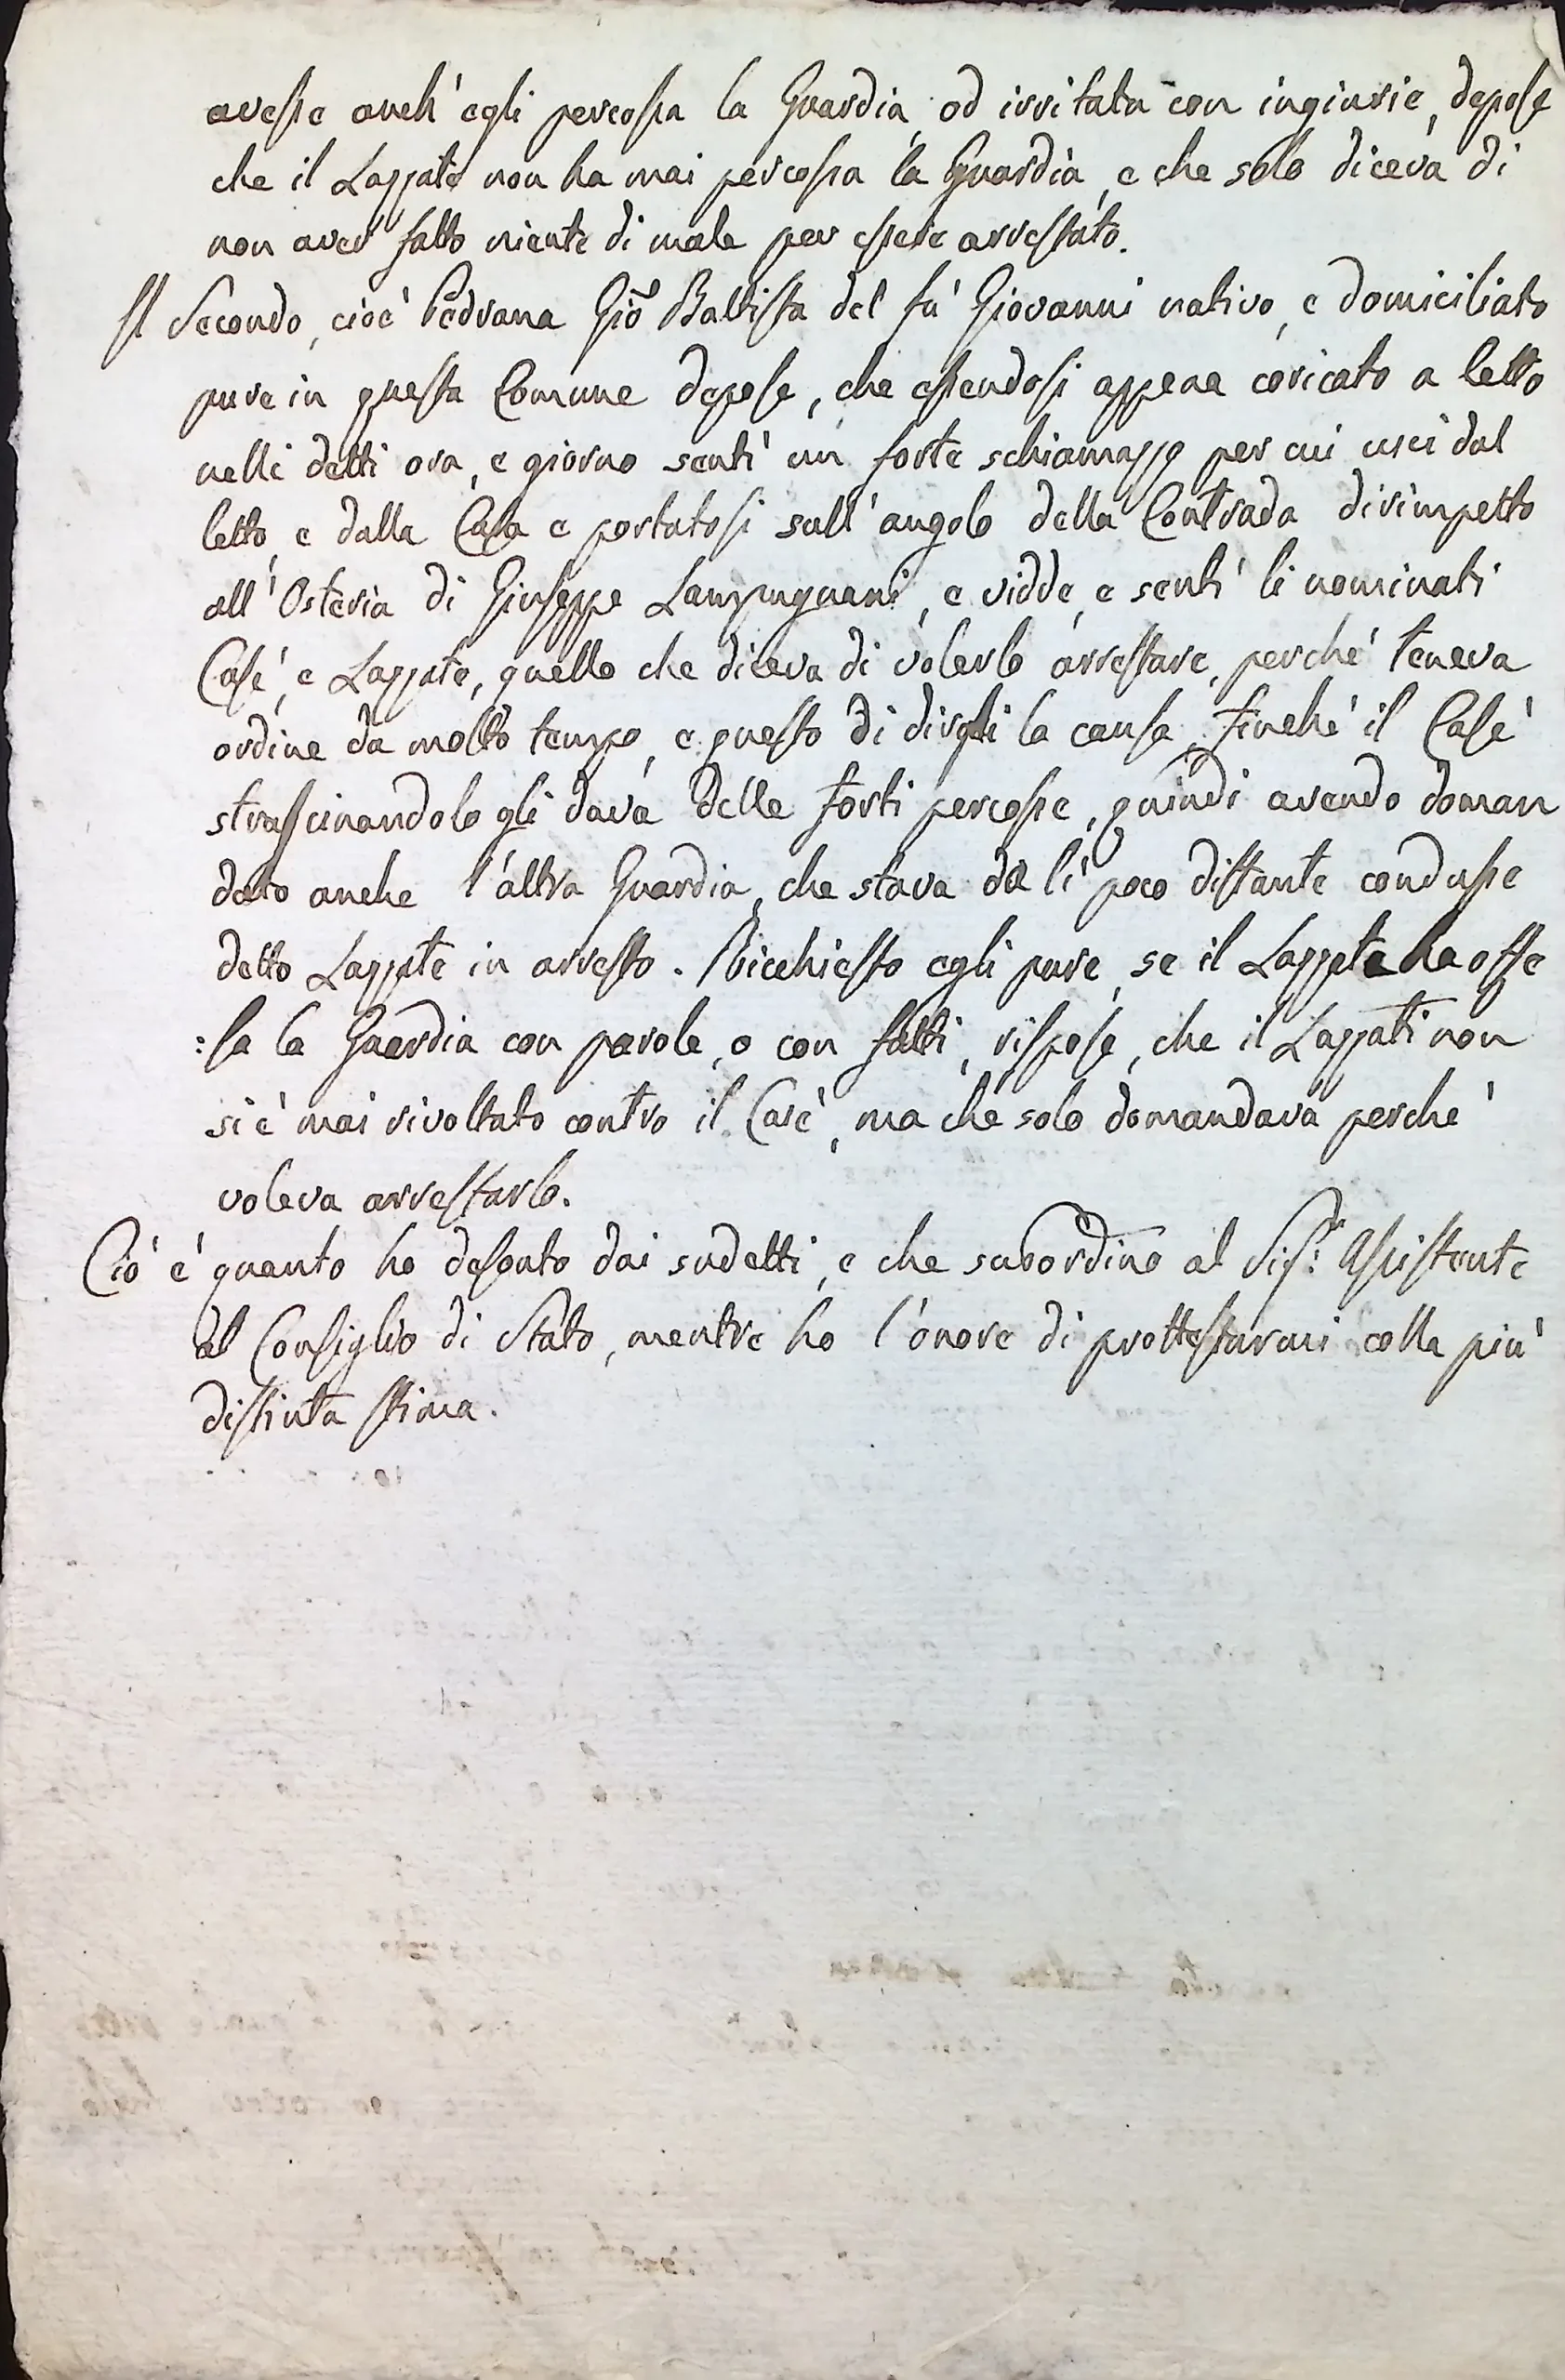 avesse anch' egli percossa la Guardia, od irritata con ingiurie, depose
che il Lazzate non ha mai percossa la Guardia, e che solo diceva di
non aver fatto niente di male per essere arrestato.
Il Secondo, cioè Pedrana Gio Battista del fù Giovanni nativo, e domiciliato
pure in questa Comune depose, che essendosi appena coricato a letto
nelli detti ora, e giorno sentì un forte schiamazzo per cui uscì dal
letto, e dalla Casa e portatosi sull'angolo della Contrada dirimpetto
all'Osteria di Giuseppe Lampugnani, e vidde, e sentì li nominati
Casè, e Lazzate, quello che diceva di volerlo arrestare, perchè teneva
ordine da molto tempo, e questo di dirgli la causa, finchè il Casè
strascinandolo gli dava delle forti percosse, quindi avendo doman
dato anche l'altra Guardia, che stava da lì poco distante condusse
detto Lazzate in arresto. Ricchiesto egli pure, se il Lazzate ha offe
:sa la Guardia con parole, o con fatti, rispose, che il Lazzati non
si è mai rivoltato contro il Casè, ma che solo domandava perchè
voleva arrestarlo.
Ciò è quanto ho desonto dai sudetti, e che subordino al Sig.r Assistente
al Consiglio di Stato, mentre ho l'onore di prottestarmi colla più
distinta stima.